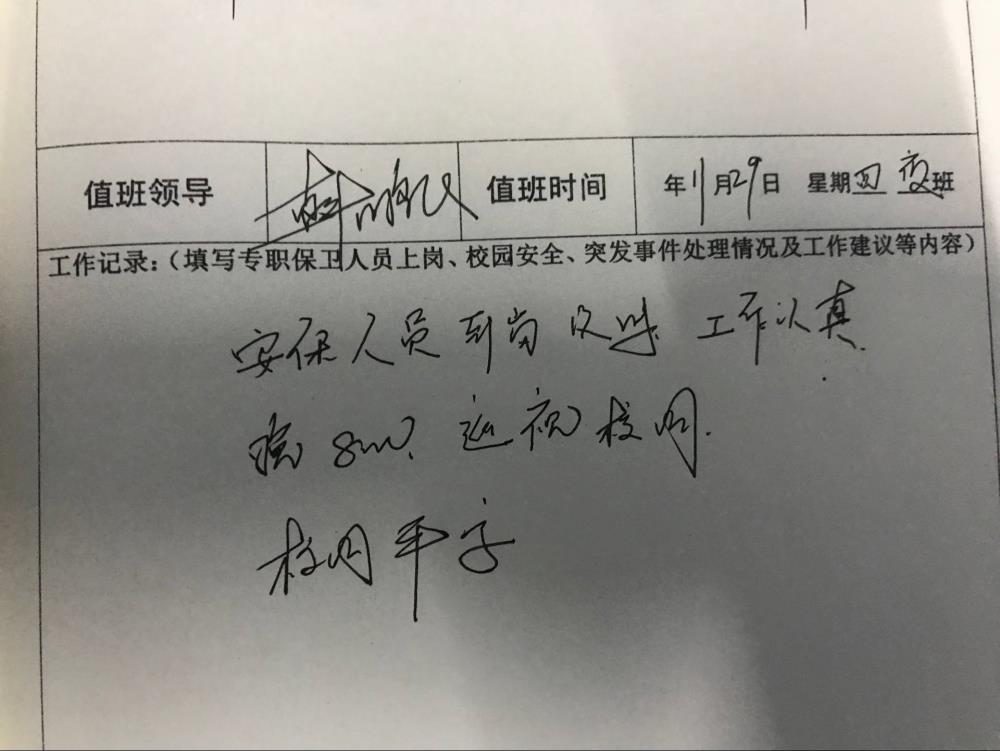 值班领导 值班时间 年11月29日 星期四 夜班
工作记录:(填写专职保卫人员上岗、校园安全、突发事件处理情况及工作建议等内容)
安保人员到岗及时 工作认真.
晚8:00. 巡视校园.
校园平安